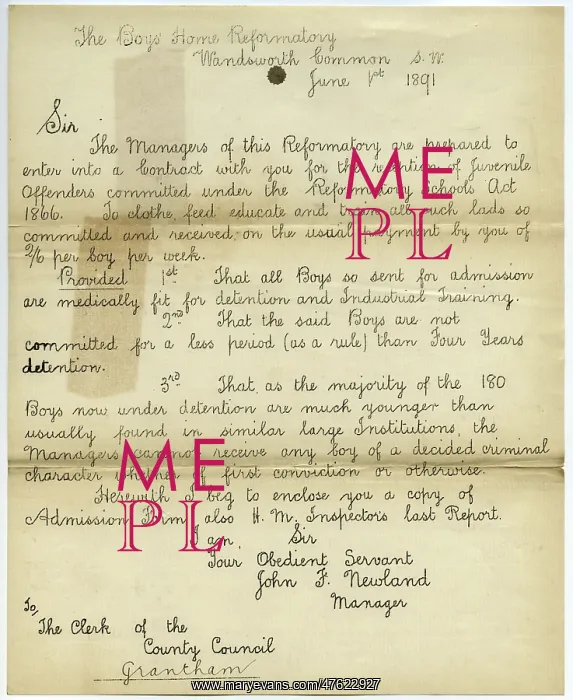 The Boys' Home Reformatory
Wandsworth Common S. W.
June 1st 1891
Sir
The Managers of this Reformatory are prepared to
enter into a Contract with you for the reception of Juvenile
Offenders committed under the Reformatory Schools Act
1866. To clothe, feed educate and train all such lads so
committed and received, on the usual payment by you of
2/6 per boy per week.
Provided 1st That all Boys so sent for admission
are medically fit for detention and Industrial Training.
2nd That the said Boys are not
committed for a less period (as a rule) than Four Years
detention.
3rd That, as the majority of the 180
Boys now under detention are much younger than
usually found in similar large Institutions, the
Managers cannot receive any boy of a decided criminal
character whether of first conviction or otherwise.
Herewith I beg to enclose you a copy of
Admission Form, also H. M. Inspector's last Report.
I am, Sir
Your Obedient Servant
John F. Newland
Manager
To,
The Clerk of the
County Council
Grantham
ME
PL
ME
PL
www.maryevans.com/47622927